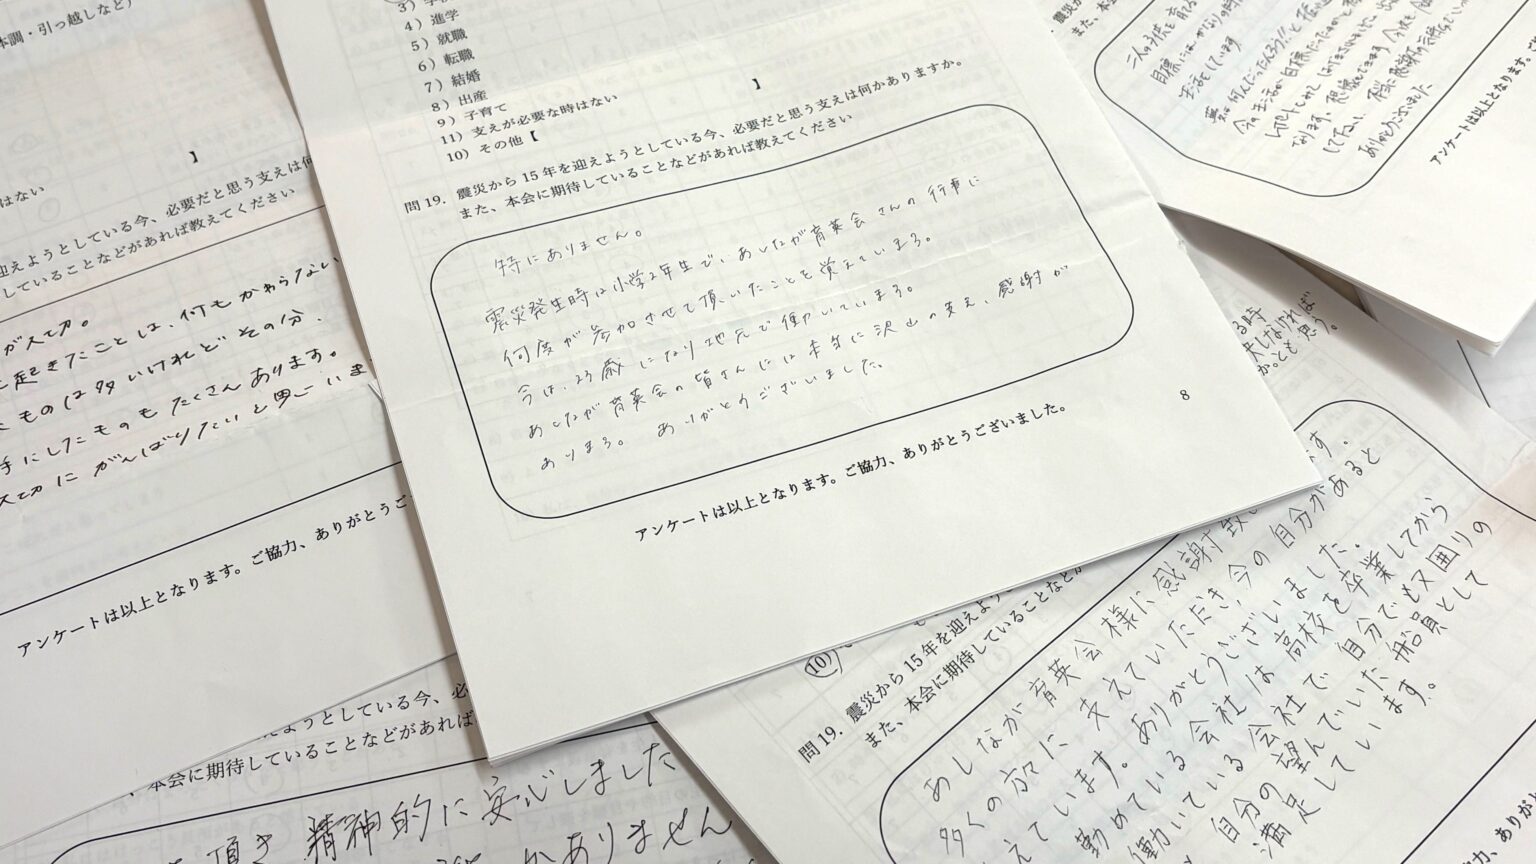 体調・引っ越しなど)
】
はない
必要だと思う支えは何
していることなどがあれば教えてください
が大切。
起きたことは、何もかわらない
ものは多いけれどその分、
手にしたものもたくさんあります。
大切にがんばりたいと思いま
アンケートは以上となります。ご協力、ありがとうご
4）進学
5）就職
6）転職
7）結婚
8）出産
9）子育て
11）支えが必要な時はない
10）その他【 】
問 19. 震災から 15 年を迎えようとしている今、必要だと思う支えは何かありますか。
また、本会に期待していることなどがあれば教えてください
特にありません。
震災発生時は小学2年生で、あしなが育英会さんの行事に
何度が参加させて頂いたことを覚えていまる。
今は、23歳になり地元で働いていまる。
あしなが育英会の皆さんには本当に沢山の支え、感謝が
ありまる。ありがとうございました。
8
アンケートは以上となります。ご協力、ありがとうございました。
また、本会に期待
二人の子供を育
生活をしています
ありがとうございました
アンケートは以上となります。
ようとしている今、必
本会に期待していることなどがあれば
頂き精神的に安心しました
かありません
る時
しなければ
とも思う。
(10)
問 19. 震災から 15 年を迎えよう
また、本会に期待していることなどが
あしなが育英会様に感謝致し ます。
多くの方々に支えていただき、今の自分があると
えています。ありがとうございました。
勤めている会社は高校を卒業してから
働いている会社で自分でも又囲りの
自分の望んでいた船員として
満足しています。
協力、ありがと